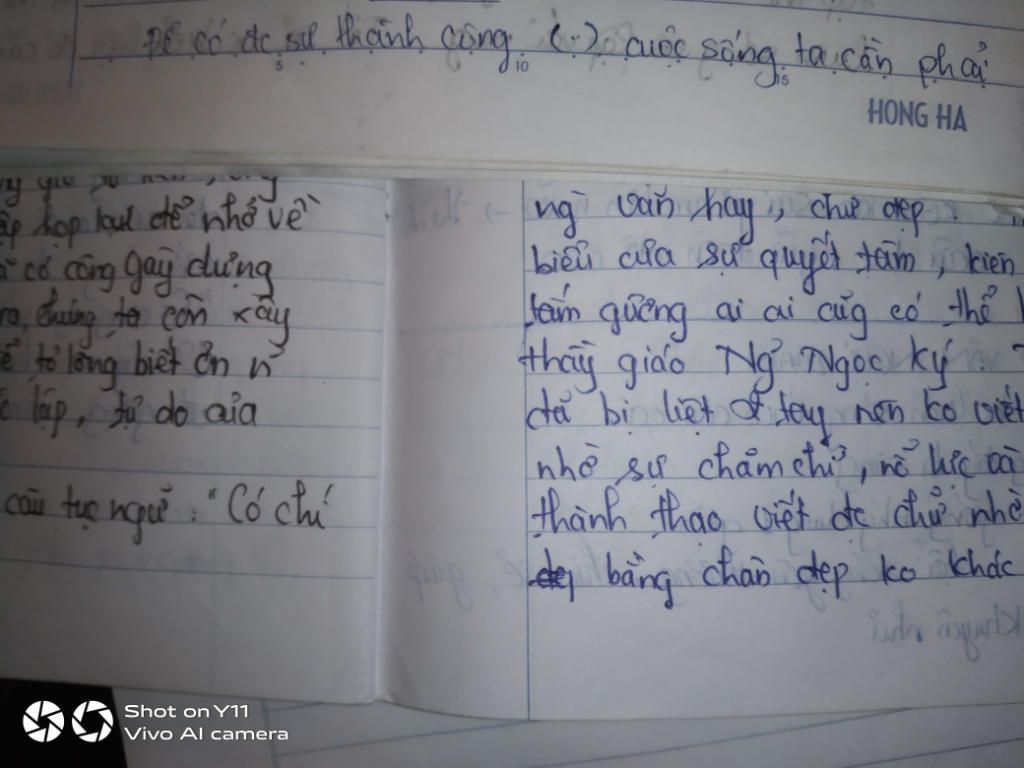 Để có đc sự thành công (..) cuộc sống ta cần phải
5 10 15
HONG HA
để nhớ về
có công gây dựng
chúng ta còn xây
tỏ lòng biết ơn n
lập, tự do của
câu tục ngữ : "Có chí
ng văn hay, chữ đẹp.
biểu của sự quyết tâm, kiên
tấm gương ai ai cũg có thể
thầy giáo Ng̉ Ngọc Ký.
đã bị liệt 2 tay nên ko viết
nhờ sự chăm chỉ, nỗ lực và
thành thạo viết đc chữ nhờ
bằng chân đẹp ko khác
Khuyên như
Shot on Y11
Vivo AI camera